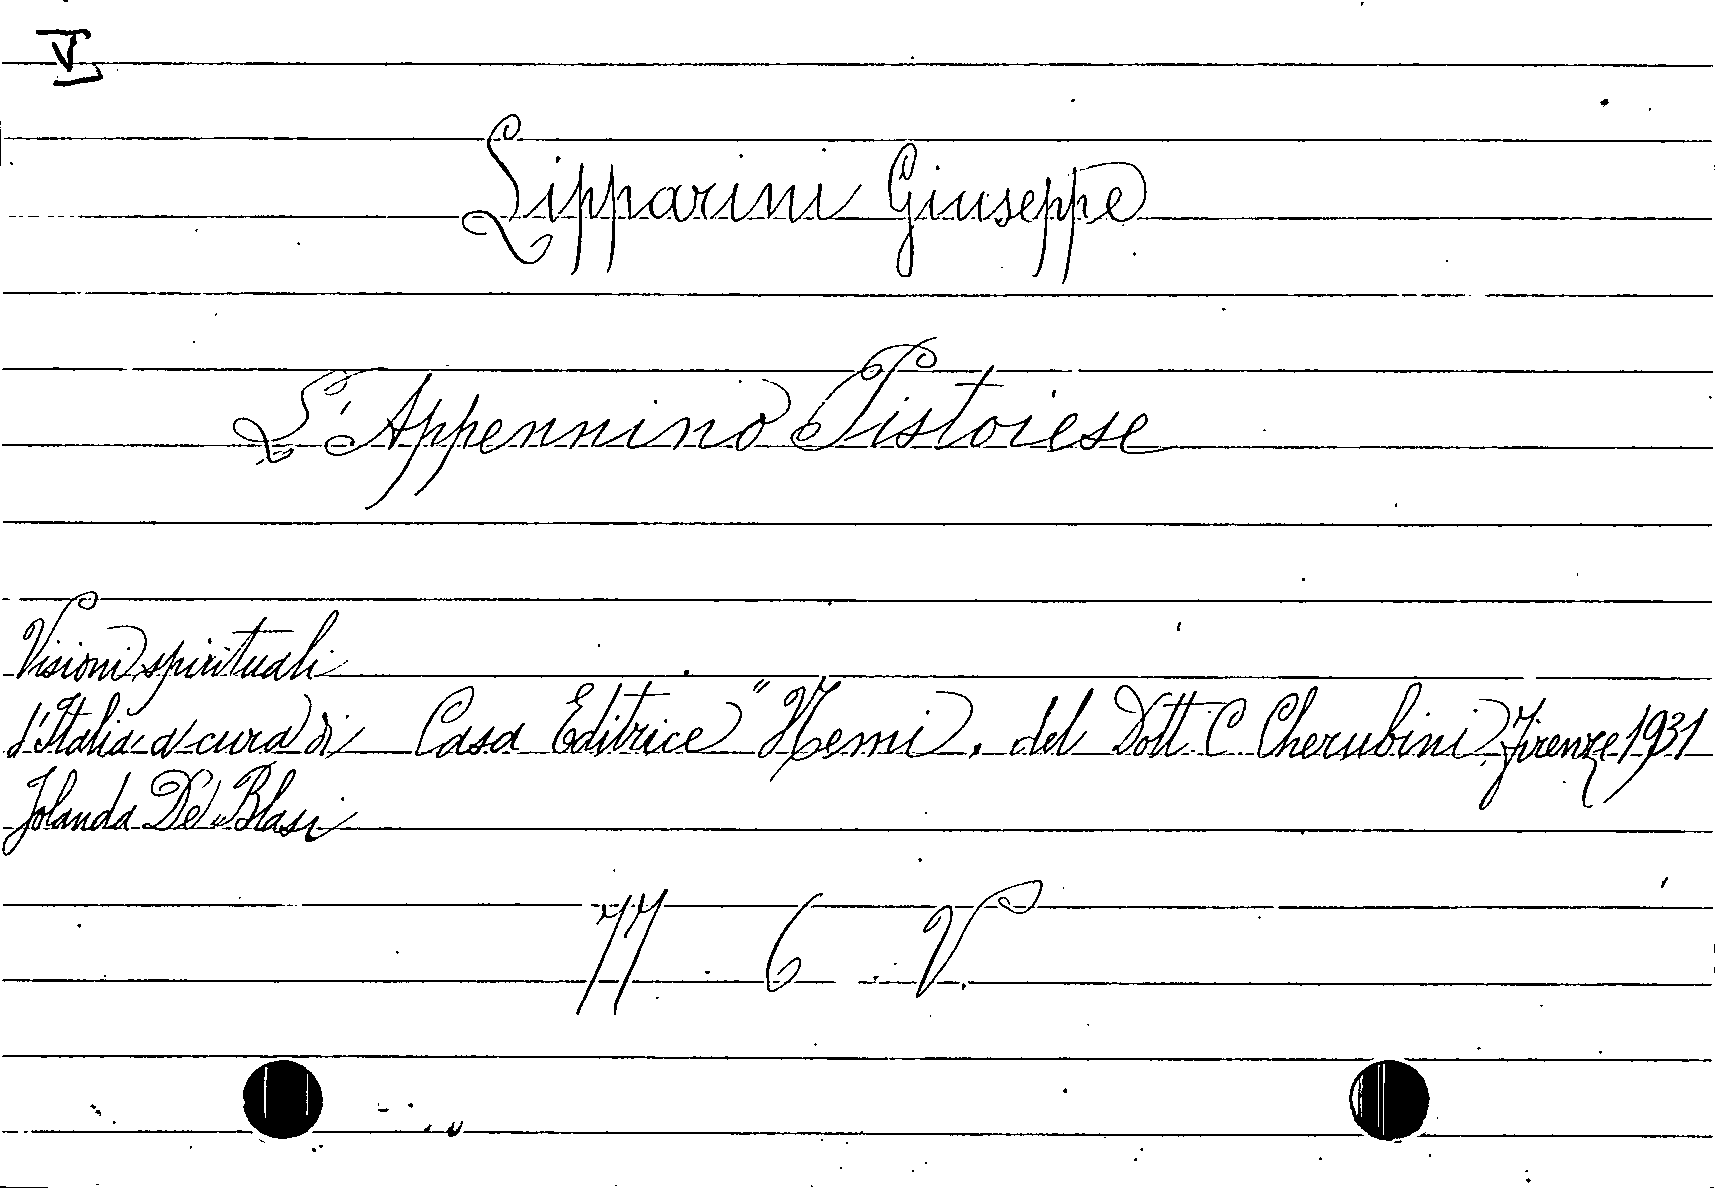 V
Lipparini Giuseppe
L'Appennino Pistoiese
Visioni spirituali
d'Italia a cura di Casa Editrice "Nemi, del Dott. C Cherubini Firenze 1931
Jolanda De Blasi
77 . 6 . V.